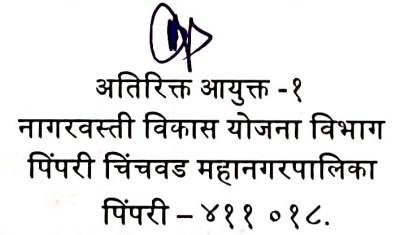 अतिरिक्त आयुक्त -१
नागरवस्ती विकास योजना विभाग
पिंपरी चिंचवड महानगरपालिका
पिंपरी – ४११ ०१८.